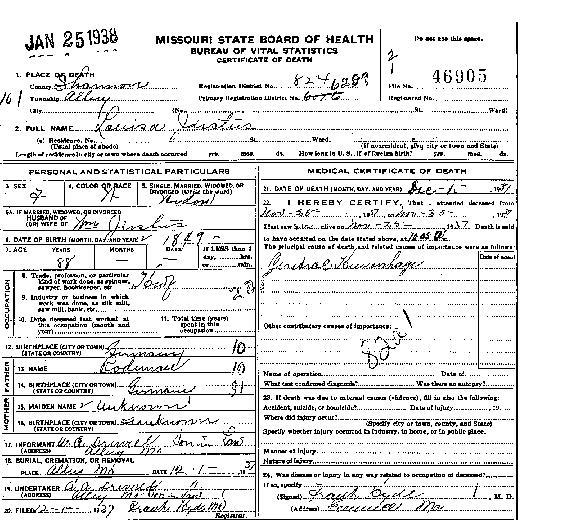 JAN 25 1938
MISSOURI STATE BOARD OF HEALTH
BUREAU OF VITAL STATISTICS
CERTIFICATE OF DEATH
Do not use this space.
1. PLACE OF DEATH
County Shannon Registration District No. 824
Township Alley Primary Registration District No.
File No. 46905
Registered No.
City (No. St. Ward)
2. FULL NAME Louisa
(a) Residence, No. St. Ward.
(Usual place of abode) (If nonresident, give city or town and State)
Length of residence in city or town where death occurred yrs. mos. ds. How long in U. S., if of foreign birth? yrs. mos. ds.
PERSONAL AND STATISTICAL PARTICULARS
3. SEX 4. COLOR 5. SINGLE, MARRIED, WIDOWED, OR DIVORCED (write the word)
F W Widow
5A. IF MARRIED, WIDOWED, OR DIVORCED
HUSBAND OF
(OR) WIFE OF Wm
6. DATE OF BIRTH (MONTH, DAY, AND YEAR) 1849
7. AGE YEARS MONTHS DAYS If LESS than 1 day, hrs. or min.
88
OCCUPATION
8. Trade, profession, or particular kind of work done, as spinner, sawyer, bookkeeper, etc.
9. Industry or business in which work was done, as silk mill, saw mill, bank, etc.
10. Date deceased last worked at this occupation (month and year)
11. Total time (years) spent in this occupation
12. BIRTHPLACE (CITY OR TOWN) (STATE OR COUNTRY) Germany
FATHER
13. NAME
14. BIRTHPLACE (CITY OR TOWN) (STATE OR COUNTRY) Germany
MOTHER
15. MAIDEN NAME Unknown
16. BIRTHPLACE (CITY OR TOWN) (STATE OR COUNTRY) Unknown
17. INFORMANT Son in Law
(ADDRESS) Alley Mo
18. BURIAL, CREMATION, OR REMOVAL
PLACE Alley Mo DATE 12-1-37
19. UNDERTAKER
(ADDRESS) Alley Mo
20. FILED 12-1-1937 Frank Hyde MD
Registrar
MEDICAL CERTIFICATE OF DEATH
21. DATE OF DEATH (MONTH, DAY, AND YEAR) Dec-1- 1937
22. I HEREBY CERTIFY, That I attended deceased from
Nov-25- 1937 Nov-25- 1937
I last saw alive on Nov-25- 1937 Death is said
to have occurred on the date stated above, at
The principal cause of death and related causes of importance were as follows:
Date of onset
Cerebral Hemorrhage
Other contributory causes of importance:
Name of operation Date of
What test confirmed diagnosis? Was there an autopsy?
23. If death was due to external causes (violence), fill in also the following:
Accident, suicide, or homicide? Date of injury 19
Where did injury occur?
(Specify city or town, county, and State)
Specify whether injury occurred in industry, in home, or in public place.
Manner of injury
Nature of injury
24. Was disease or injury in any way related to occupation of deceased?
If so, specify
(Signed) Frank Hyde M. D.
(Address) Eminence Mo